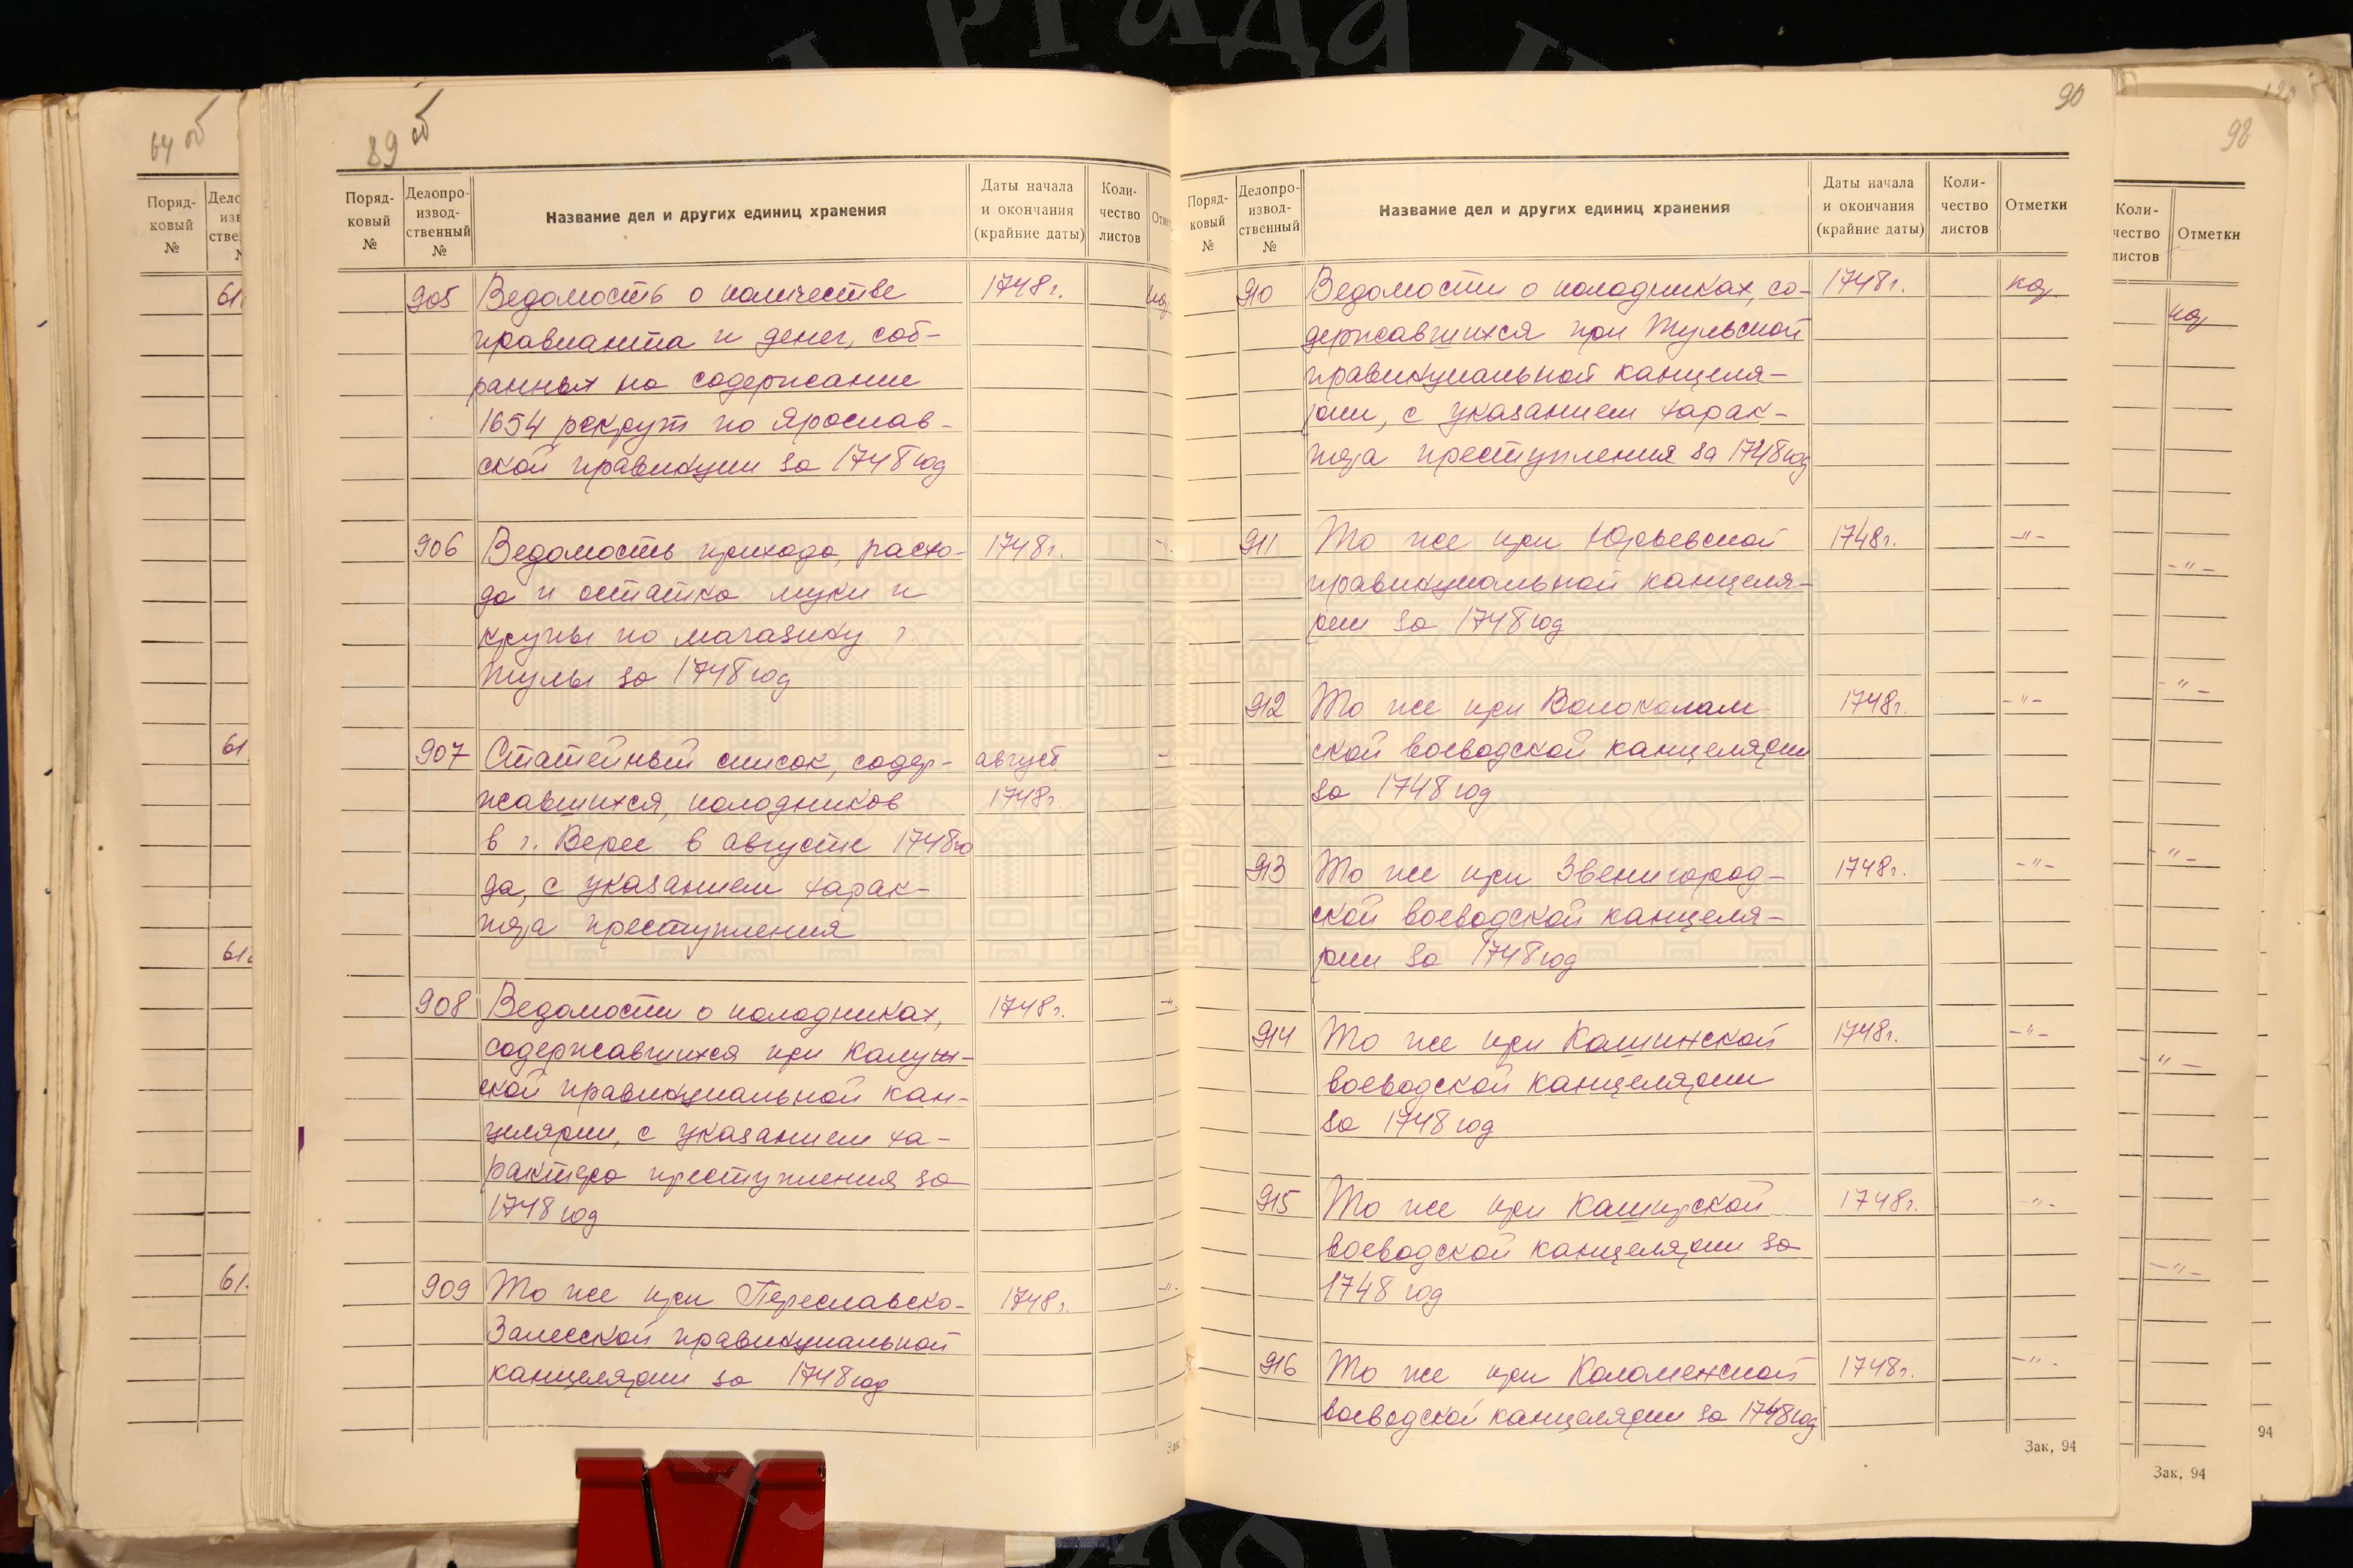 64 об
Поряд-
ковый
№
89 об
Поряд-
ковый
№
Делопро-
извод-
ственный
№
Название дел и других единиц хранения
Даты начала
и окончания
(крайние даты)
Коли-
чество
листов
905 Ведомость о количестве 1748 г.
провианта и денег, соб-
ранных на содержание
1654 рекрут по Ярослав-
ской провинции за 1748 год
906 Ведомость прихода, расхо- 1748 г. -"-
да и остатка муки и
крупы по магазину г.
Тулы за 1748 год
907 Статейный список, содер- август -"-
жавшихся, колодников 1748 г.
в г. Верее в августе 1748 го
да, с указанием харак-
тера преступления
908 Ведомости о колодниках, 1748 г. -"-
содержавшихся при Калуж-
ской провинциальной кан-
целярии, с указанием ха-
рактера преступления за
1748 год
909 То же при Переславско- 1748 г. -"-
Залесской провинциальной
канцелярии за 1748 год
90
Поряд-
ковый
№
Делопро-
извод-
ственный
№
Название дел и других единиц хранения
Даты начала
и окончания
(крайние даты)
Коли-
чество
листов
Отметки
910 Ведомости о колодниках, со- 1748 г.
державшихся при Тульской
провинциальной канцеля-
рии, с указанием харак-
тера преступления за 1748 год
911 То же при Юрьевской 1748 г. -"-
провинциальной канцеля-
рии за 1748 год
912 То же при Волоколам 1748 г. -"-
ской воеводской канцелярии
за 1748 год
913 То же при Звенигород- 1748 г. -"-
ской воеводской канцеля-
рии за 1748 год
914 То же при Кашинской 1748 г. -"-
воеводской канцелярии
за 1748 год
915 То же при Каширской 1748 г. -"-
воеводской канцелярии за
1748 год
916 То же при Коломенской 1748 г. -"-
воеводской канцелярии за 1748 год
Зак. 94
98
Коли-
чество
листов
Отметки
-"-
-"-
-"-
-"-
-"-
Зак. 94
94